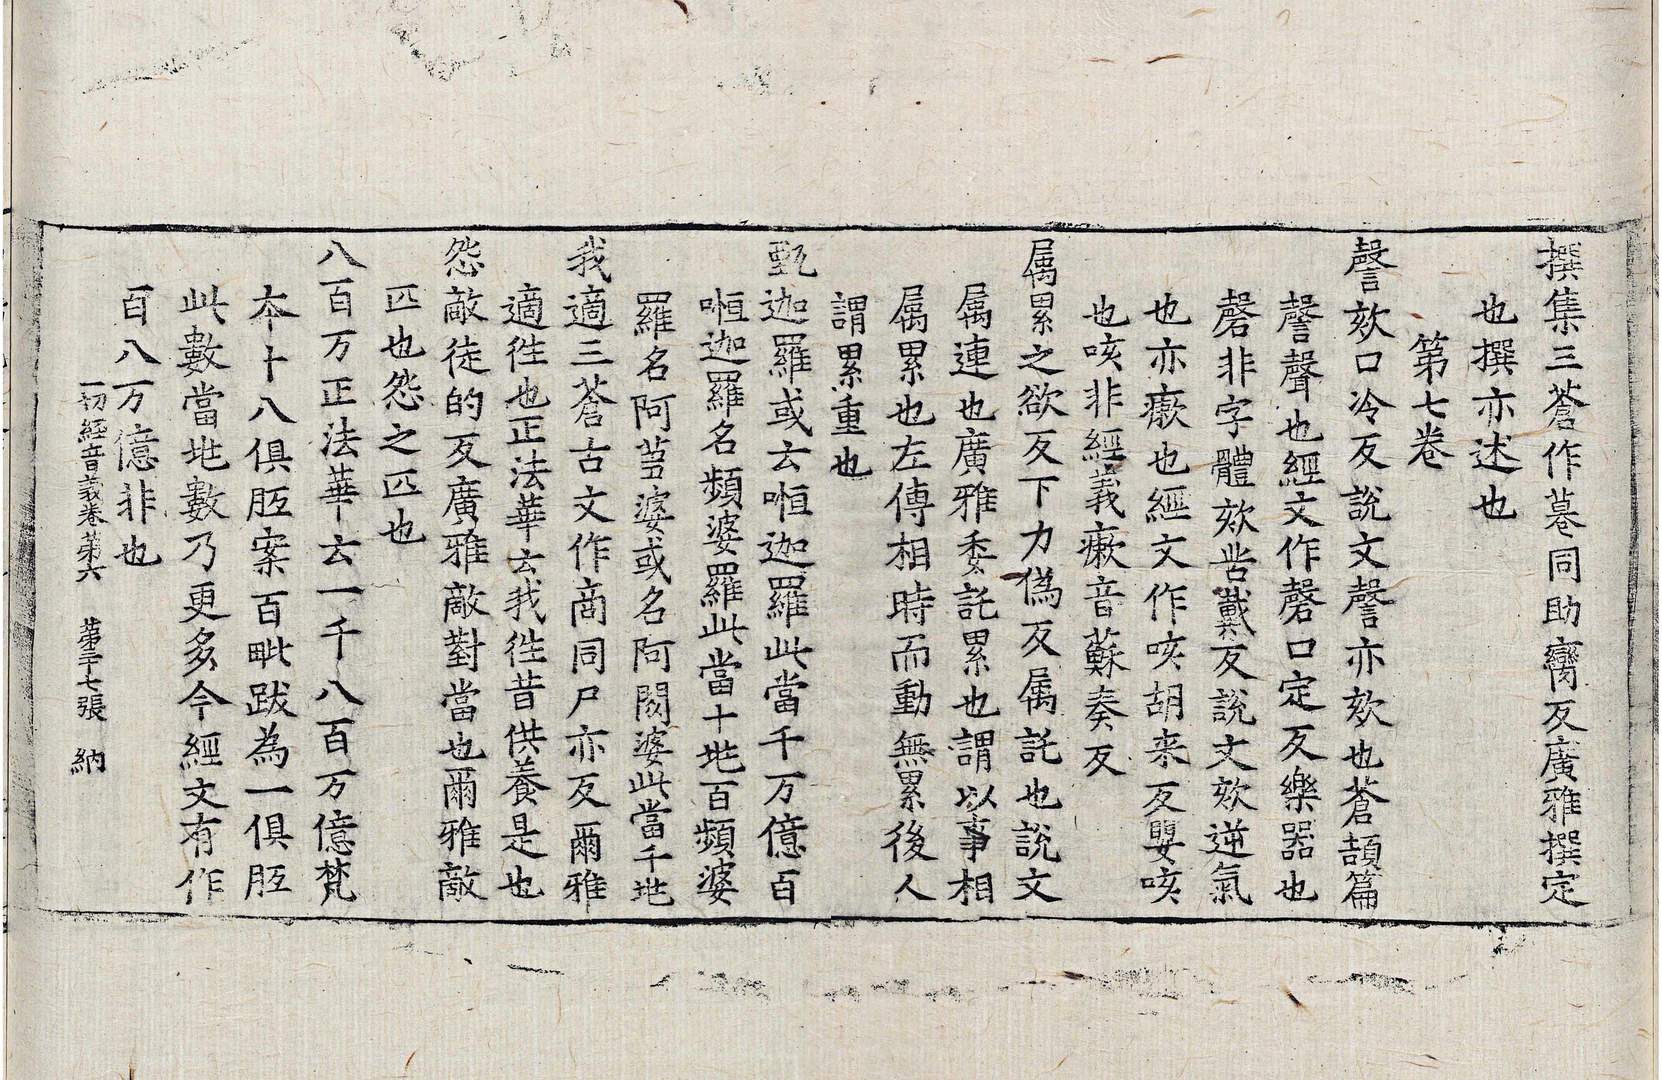 撰集三蒼作䉵同助臠反廣雅撰定
也撰亦述也
第七卷
謦欬口冷反說文謦亦欬也蒼頡篇
謦聲也經文作磬口定反樂器也
磬非字體欬苦戴反說文欬逆氣
也亦瘷也經文作咳胡来反嬰咳
也咳非經義瘷音蘇奏反
属累之欲反下力偽反属託也說文
属連也廣雅委託累也謂以事相
属累也左傳相時而動無累後人
謂累重也
甄迦羅或云㖶迦羅此當千万億百
㖶迦羅名頻婆羅此當十地百頻婆
羅名阿芻婆或名阿閦婆此當千地
我適三蒼古文作啇同尸亦反爾雅
適徃也正法華云我徃昔供養是也
怨敵徒的反廣雅敵對當也爾雅敵
匹也怨之匹也
八百万正法華云一千八百万億梵
本十八俱胝案百毗跋為一俱胝
此數當地數乃更多今經文有作
百八万億非也
一切經音義卷第六 第三十七張 納